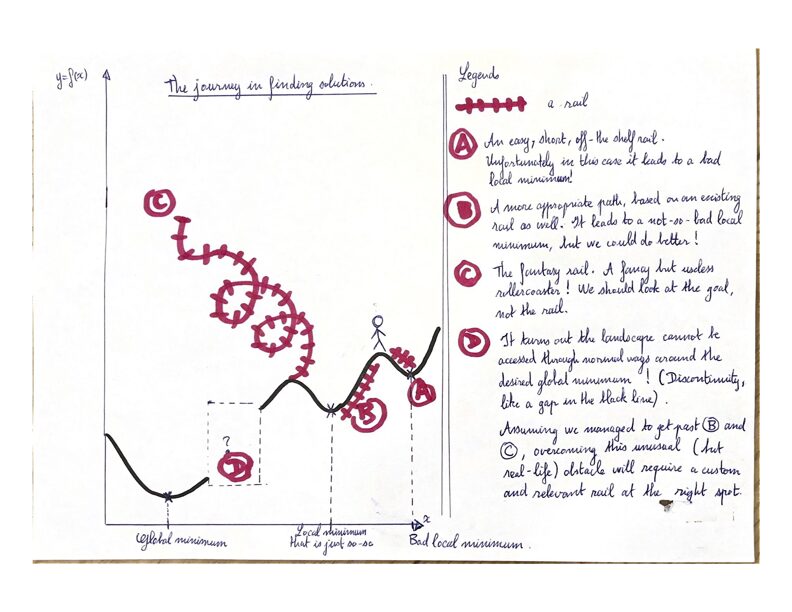 y=f(x)
The journey in finding solutions.
C
?
D
B
A
x
Global minimum
Local minimum
that is just so-so
Bad local minimum.
Legends
a rail
A An easy, short, off-the shelf rail.
Unfortunately in this case it leads to a bad
local minimum!
B A more appropriate path, based on an existing
rail as well. It leads to a not-so-bad local
minimum, but we could do better!
C The fantasy rail. A fancy but useless
rollercoaster! We should look at the goal,
not the rail.
D It turns out the landscape cannot be
accessed through normal ways around the
desired global minimum! (Discontinuity,
like a gap in the black line).
Assuming we managed to get past B and
C, overcoming this unusual (but
real-life) obstacle will require a custom
and relevant rail at the right spot.